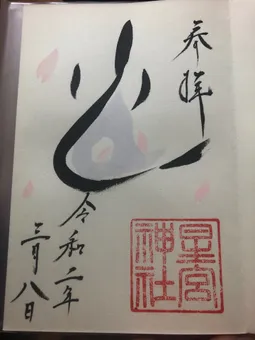 参拝
令和二年
三月八日
星宮
神社